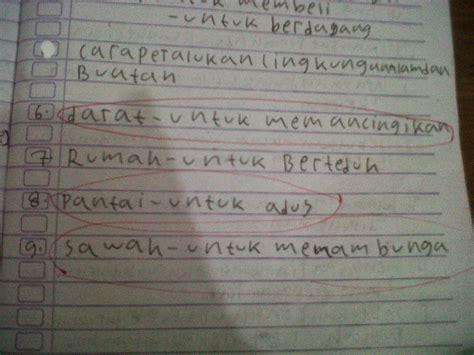 membeli
-untuk berdagang
Caraperalukan lingkunganalamdan
Buatan
6. darat-untuk memancingikan
7 Rumah-untuk Berteduh
8. pantai-untuk adus
9. sawah-untuk menambunga